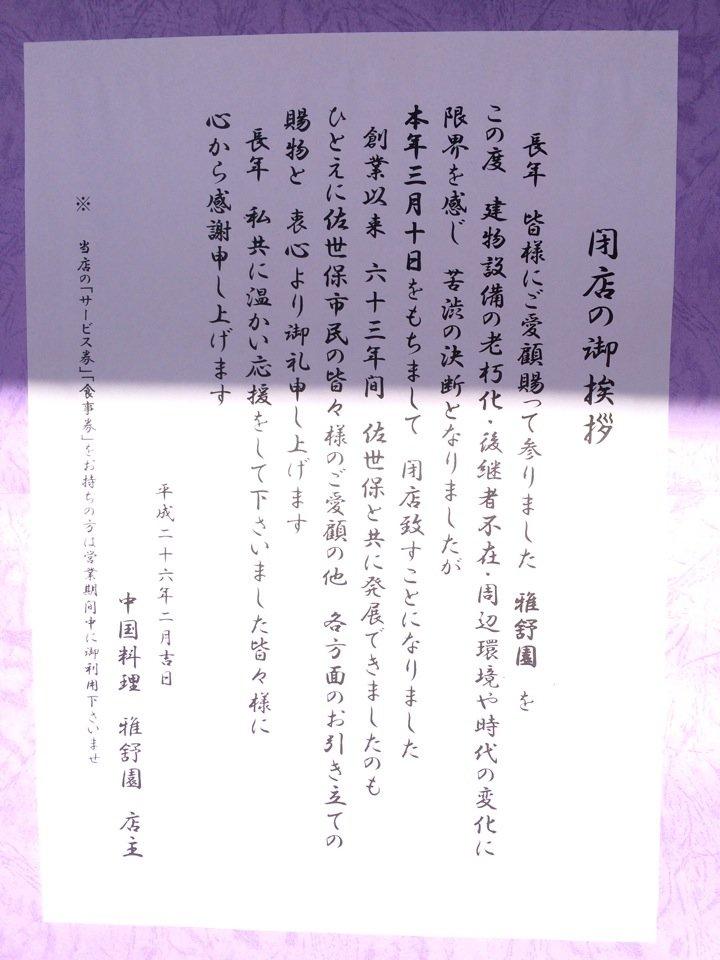 閉店の御挨拶
長年 皆様にご愛顧賜って参りました 雅舒園 を
この度 建物設備の老朽化・後継者不在・周辺環境や時代の変化に
限界を感じ 苦渋の決断となりましたが
本年三月十日をもちまして 閉店致すことになりました
創業以来 六十三年间 佐世保と共に発展できましたのも
ひとえに佐世保市民の皆々様のご愛顧の他 各方面のお引き立ての
賜物と 衷心より御礼申し上げます
長年 私共に温かい応援をして下さいました皆々様に
心から感謝申し上げます
平成二十六年二月吉日
中国料理 雅舒園 店主
※ 当店の「サービス券」「食事券」をお持ちの方は営業期间中に御利用下さいませ